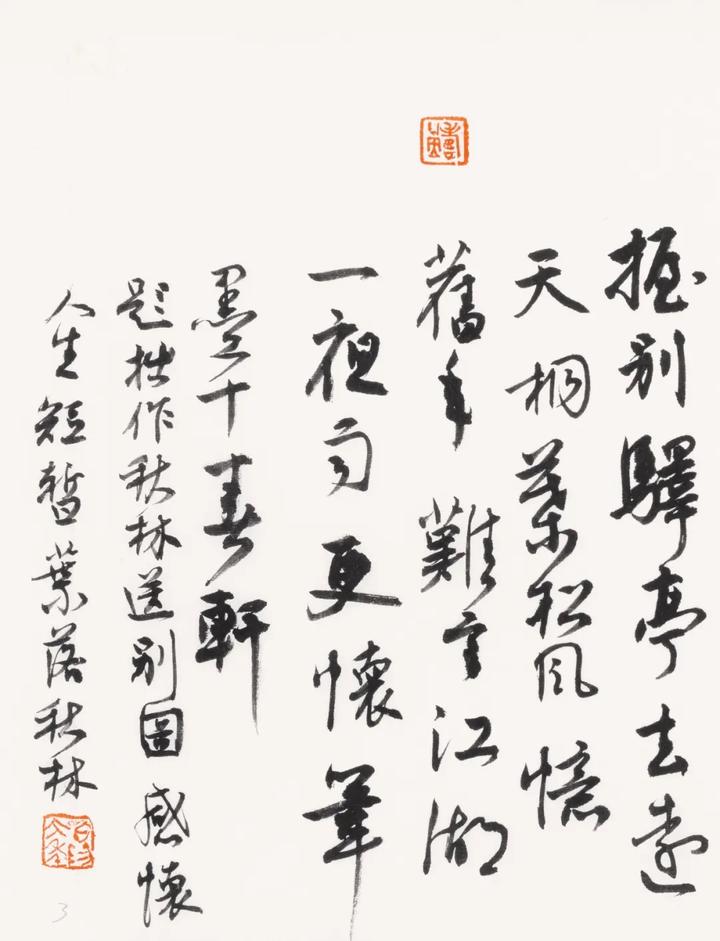 握别驛亭去遠
天桐葉松風憶
舊年難言江湖
一夜雨更懷筆
墨十春軒
題拙作秋林送别圖感懷
人生短暫葉落秋林
3